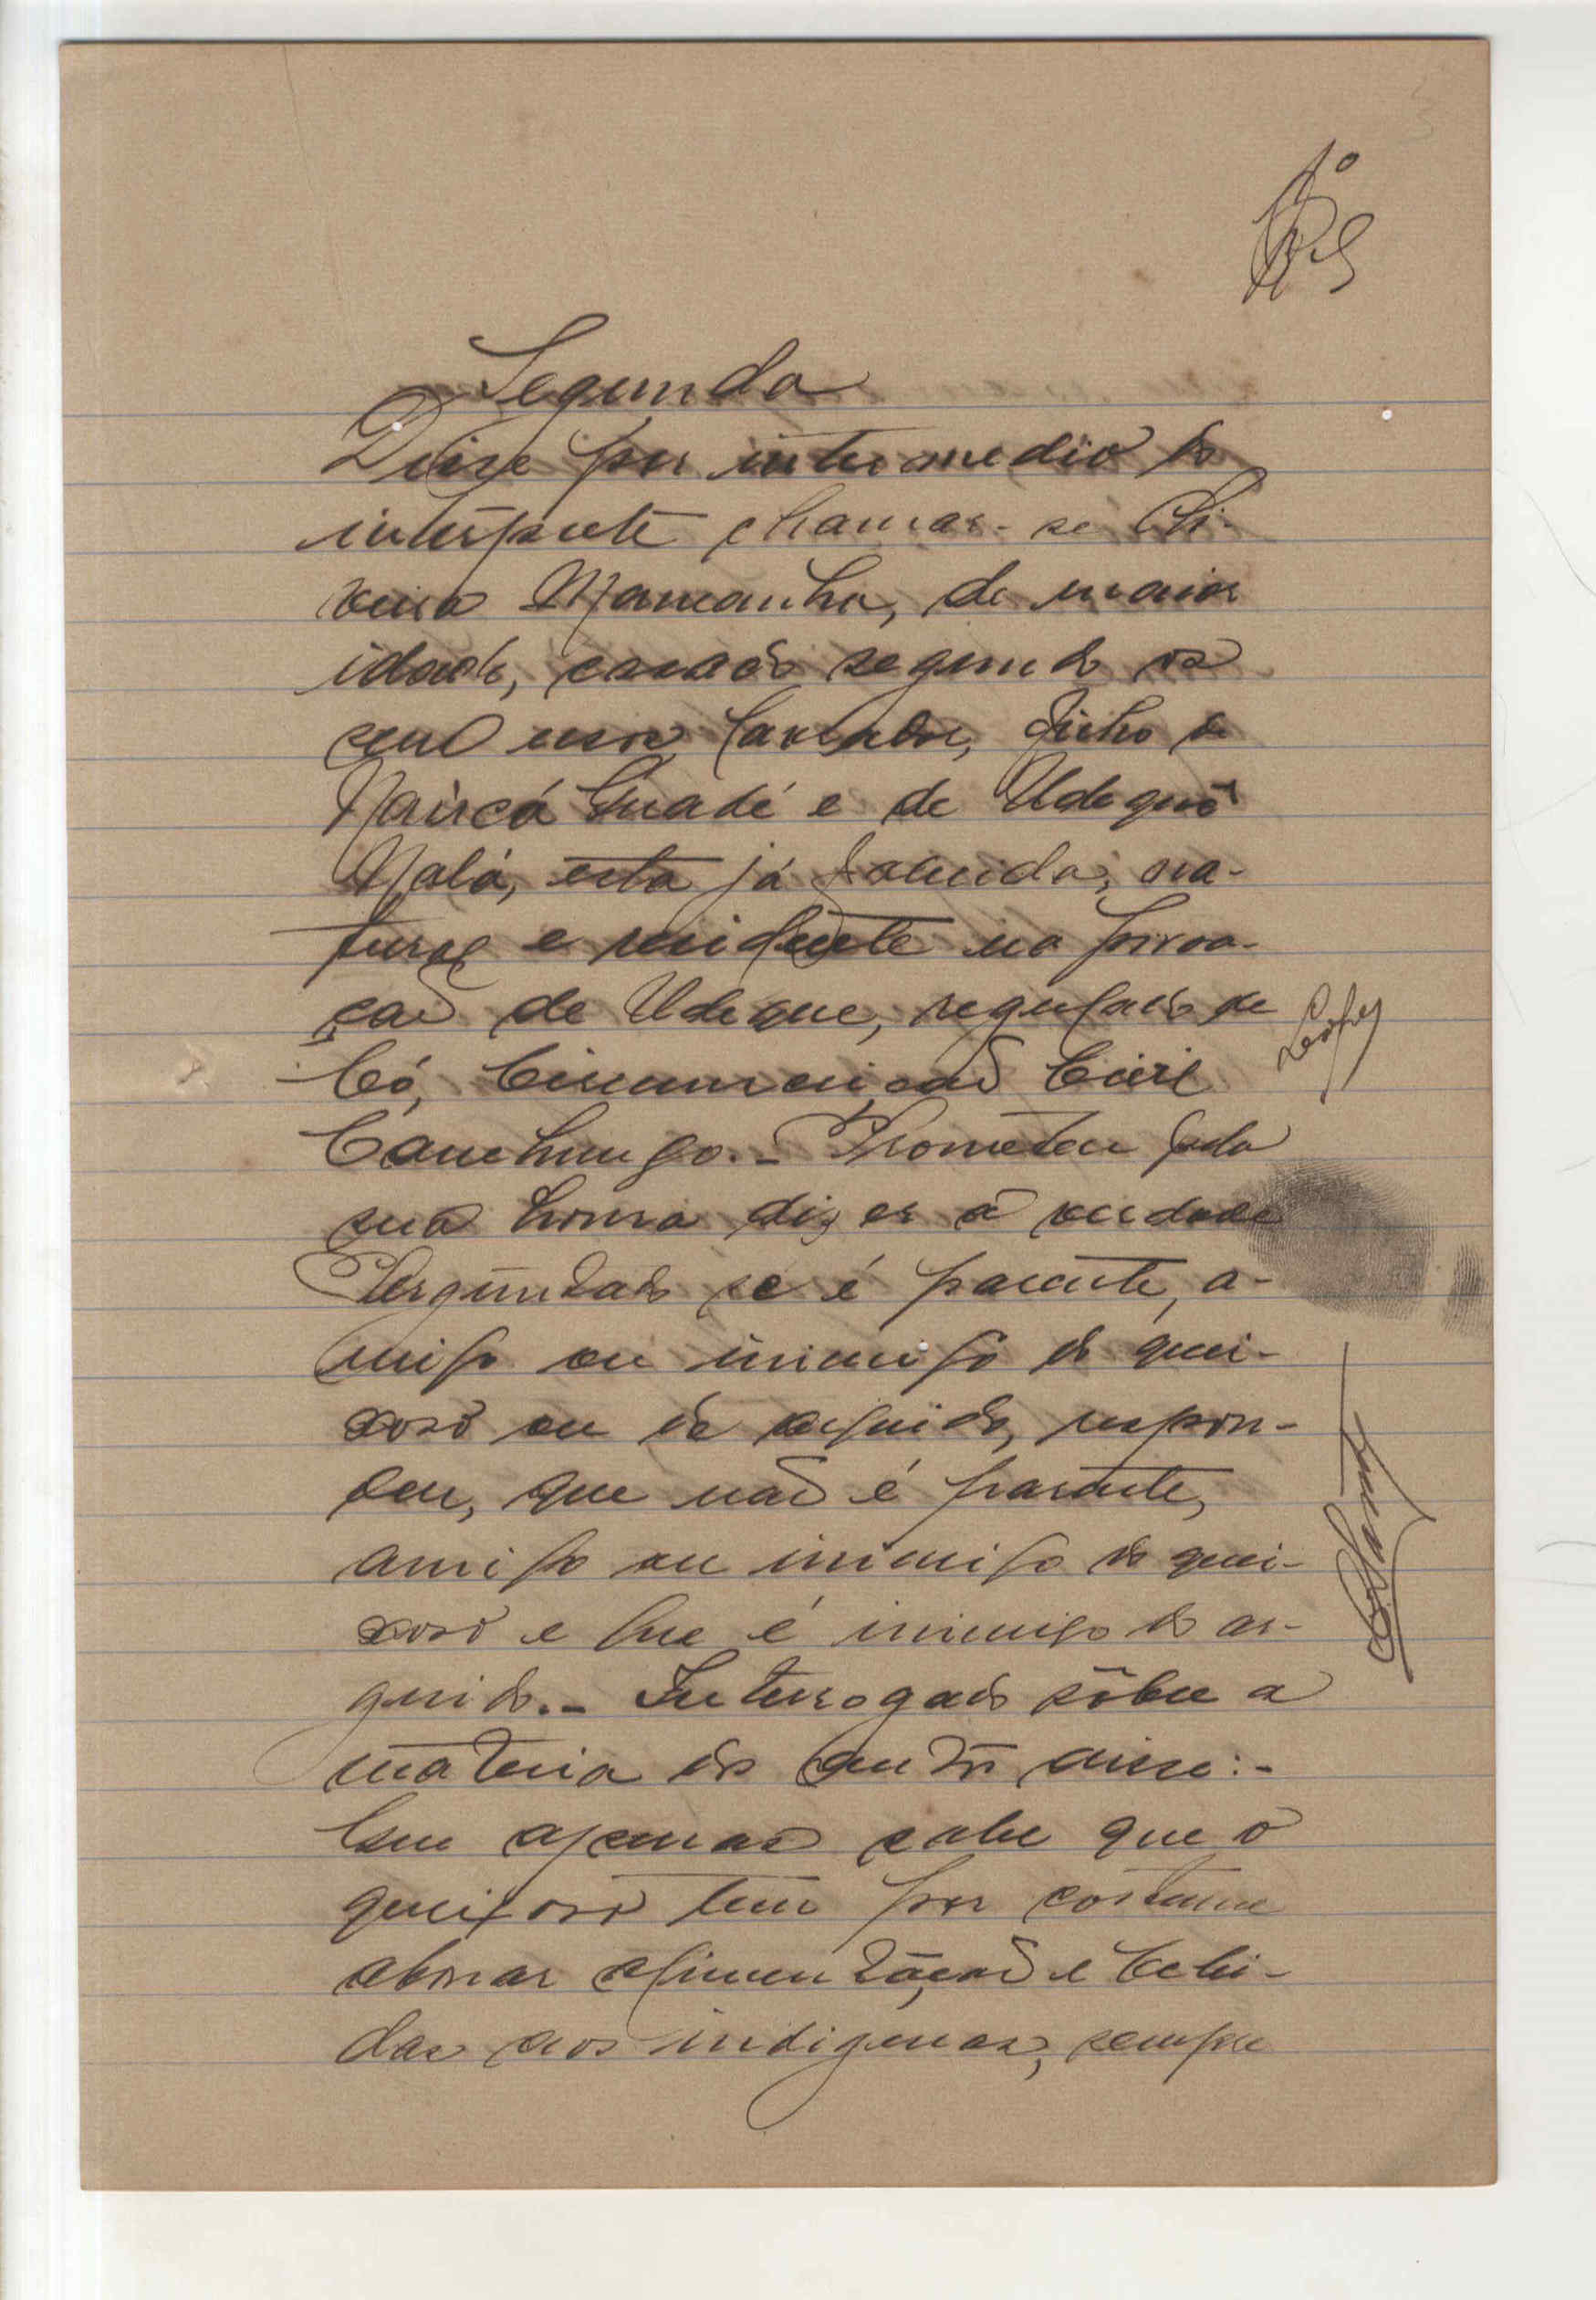 Segunda
Disse por intermedio do
interprete chamar-se Oli-
veira Mamanha, de maior
idade, casado segundo os
seus usos, lavrador, filho de
Naircá Guadé e de Udeque
Nalá, esta já falecida, na-
tural e residente na povoa-
ção de Udeque, regulado de
Có, Circunscrição Civil
Canchungo.- Prometeu pela
sua honra dizer a verdade
Perguntado se é parente, a-
migo ou inimigo do quei-
xoso ou do arguido, respon-
deu, que não é parente,
amigo ou inimigo do quei-
xoso e que é inimigo do ar-
guido.- Interrogado sôbre a
materia dos autos disse:-
Que apenas sabe que o
queixoso tem por costume
abonar alimentação e bebi-
das aos indigenas, sempre